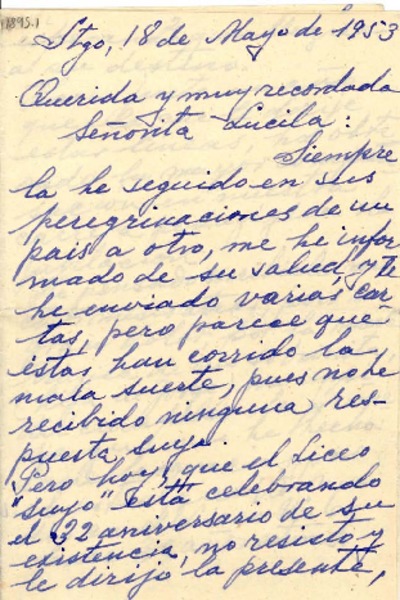 (1895.)
Stgo, 18 de Mayo de 1953
Querida y muy recordada
Señorita Lucila:
Siempre
la he seguido en sus
peregrinaciones de un
pais a otro, me he infor
mado de su salud, y le
he enviado varias car-
tas, pero parece que
éstas han corrido la
mala suerte, pues no he
recibido ninguna res-
puesta suya.
Pero hoy, que el Liceo
"suyo" está celebrando
el 32 aniversario de su
existencia, no resisto y
le dirijo la presente,